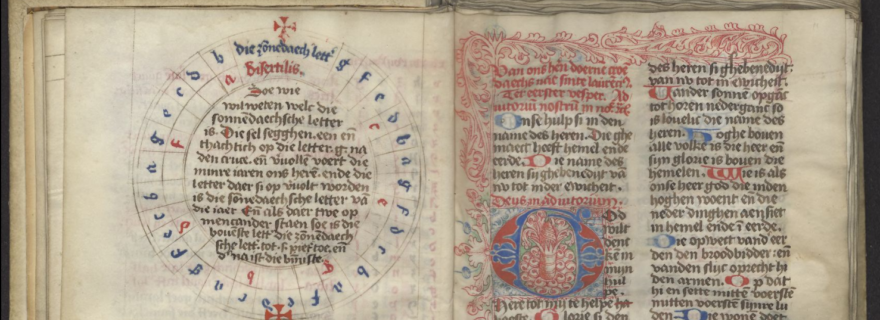 die zōnedaech lett'
Bisertilis.
Soe wie
wil weten welc die
sonnēdaechsche letter
is. Die sel segghen. een eñ
thachtich op die letter. g. na
den cruce. eñ vuolle voert die
minre iaren ons herē. ende die
letter daer si op vuolt worden
is die sōnedaechsche letter vā
die iaer Eñ als daer twe op
men cander staen soe is die
bouēste lett' die zōnēdaech
sche lett. tot. s. eñ
is die
Van ons hēn doerne
daechs
Ter eerster vesper. Ad
nostrū in
Onse hulp si in den
name des heren. Die ghe
maect heeft hemel ende
eerde. Die name des
heren si ghebenedijt vā
nv tot in der ewicheit.
Deus in adiutoriū.
God
wilt
denc
kē in
mijn
hul
pe.
Here tot mij te helpe ha
Glorie si den
des heren si ghebenedijt.
van nv tot in ewicheit.
Vander sonnē opgāc
tot horen nedergāc so
is louelic die name des
heren. Hoghe bouen
alle volke is die heer eñ
sijn glorie is bouen die
hemelen. Wie is als
onse heer god die inden
hoghen woent eñ die
neder dinghen aensiet
in hemel ende ī eerde.
Die opwect vand' eer
den den broodbidder: eñ
vanden slijc oprecht hi
den armen. Op dat
hi en sette mittē voersté
mitten voerstē sijnre lu
den. Die wone doet